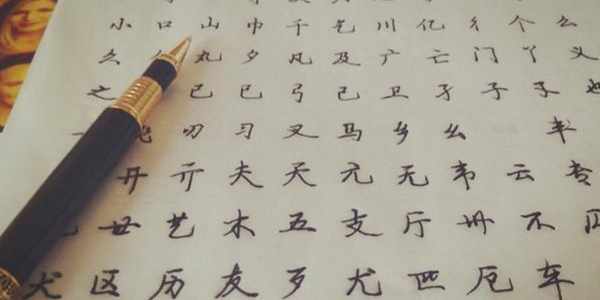 小 口 山 巾 千 乞 川 亿 彳 个 么
久 丸 夕 凡 及 广 亡 门 丫 义
之 已 巳 弓 己 卫 孑 子 孓 也
飞 刃 习 叉 马 乡 幺 丰
井 亓 夫 天 元 无 韦 云 专
廿 艺 木 五 支 厅 卅 不
尤 区 历 友 歹 尤 匹 厄 车